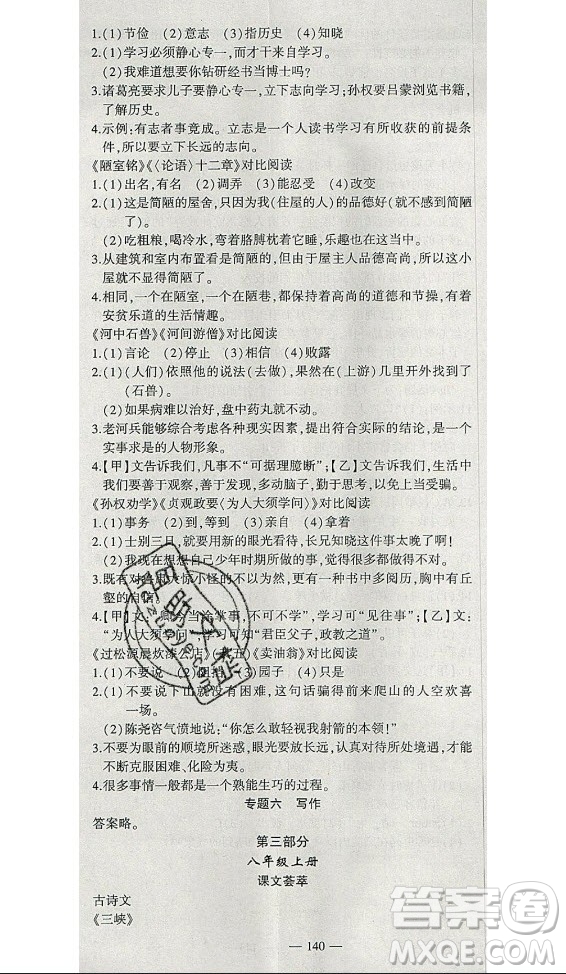 1.(1)节俭 (2)意志 (3)指历史 (4)知晓
2.(1)学习必须静心专一,而才干来自学习。
(2)我难道想要你钻研经书当博士吗?
3.诸葛亮要求儿子要静心专一,立下志向学习;孙权要吕蒙浏览书籍,
了解历史。
4.示例:有志者事竟成。立志是一个人读书学习有所收获的前提条
件,所以要立下长远的志向。
《陋室铭》《〈论语〉十二章》对比阅读
1.(1)出名,有名 (2)调弄 (3)能忍受 (4)改变
2.(1)这是简陋的屋舍,只因为我(住屋的人)的品德好(就不感到简陋
了)。
(2)吃粗粮,喝冷水,弯着胳膊枕着它睡,乐趣也在这当中。
3.从建筑和室内布置看是简陋的,但由于屋主人品德高尚,所以这小
屋就不显得简陋。
4.相同,一个在陋室,一个在陋巷,都有着高尚的道德和节操,有着
安贫乐道的生活情趣。
《河中石兽》《河间游僧》对比阅读
1.(1)言论 (2)停止 (3)相信 (4)败露
2.(1)(人们)依照他的说法(去做),果然在(上游)几里外找到了
(石兽)。
(2)如果病难以治好,盘中药丸就不动。
3.老河兵能够综合考虑各种现实因素,提出符合实际的结论,是一个
实事求是的人物形象。
4.【甲】文告诉我们,凡事不“可据理臆断”;【乙】文告诉我们,生活中
我们要善于观察,善于发现,多动脑子,勤于思考,以免上当。
《孙权劝学》《贞观政要〈为人大须学问〉》对比阅读
1.(1)事务 (2)到,等到 (3)亲自 (4)拿着
2.(1)士别三日,就要用新的眼光看待,长兄知晓这件事太晚了啊!
(2)我现在想想自己少年时期所做的事,觉得很多都不对。
3.既有对鲁肃大惊小怪的不以为然,更有一种书中多阅历,胸中有丘
壑的自信。
4.【甲】文:“卿今当涂掌事,不可不学”,学习可“见往事”;【乙】文:
“为人大须学问”,学习可知“君臣父子,政教之道”。
《过松源晨炊漆公店》(其五)《卖油翁》
1.(1)不要说 (2)阻挡 (3)园子 (4)只是
2.(1)不要说下山就没有困难,这句话骗得前来爬山的人空欢喜
一场。
(2)陈尧咨气愤地说:“你怎么敢轻视我射箭的本领!”
3.不要为眼前的顺境所迷惑,眼光要放长远,认真对待各种境遇,才能
不断克服困难、化险为夷。
4.很多事情一般都是一个熟能生巧的过程。
专题六 写作
答案略。
第三部分
八年级上册
课文荟萃
古诗文
《三峡》
— 140 —
答案圈
MXQE.COM